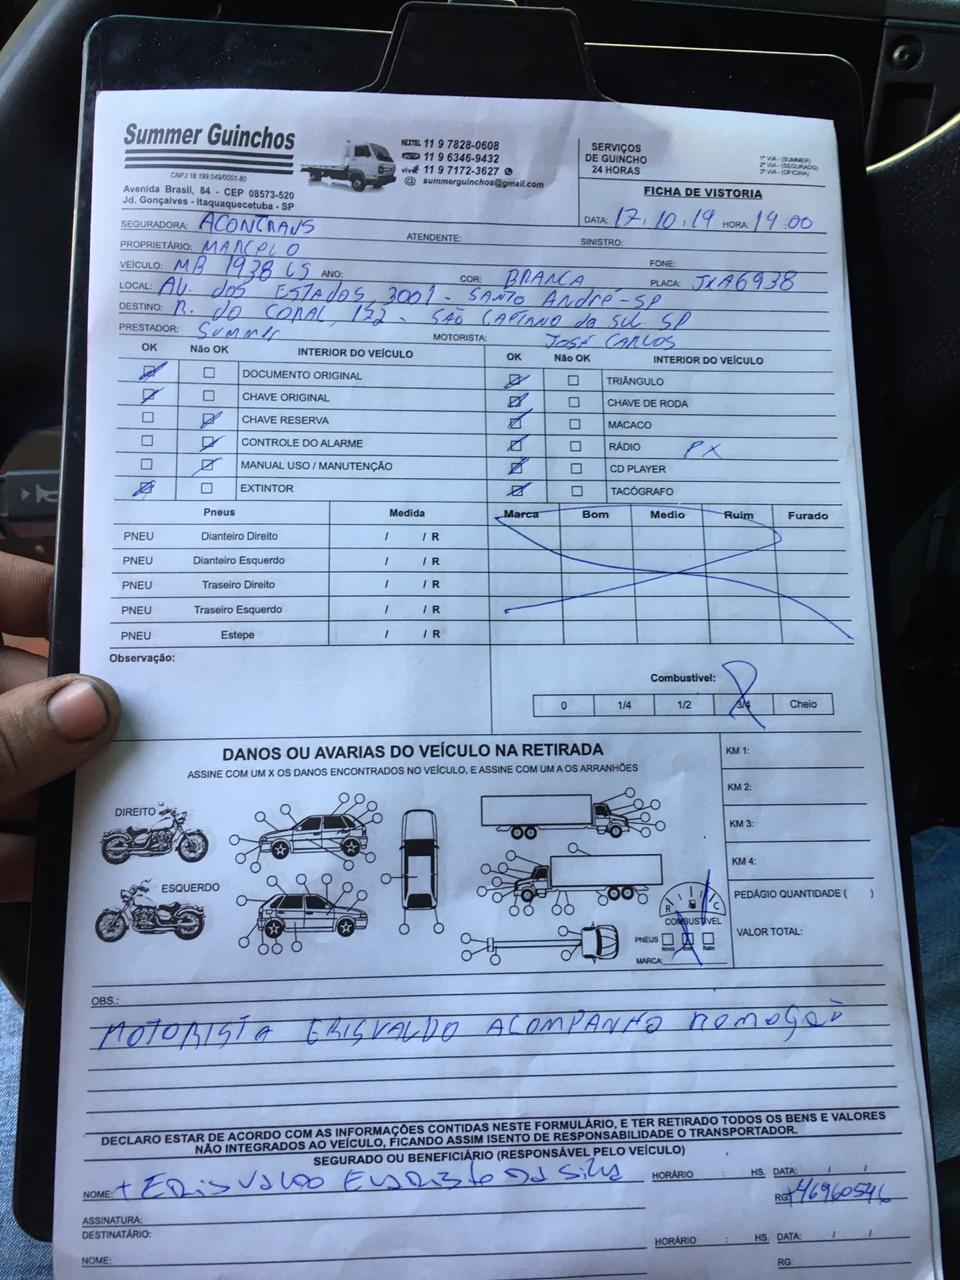 Summer Guinchos
CNPJ 18.199.049/0001-80
Avenida Brasil, 84 - CEP 08573-520
Jd. Gonçalves - Itaquaquecetuba - SP
NEXTEL 11 9 7828-0608
11 9 6346-9432
vivo 11 9 7172-3627
@ summerguinchos@gmail.com
SERVIÇOS DE GUINCHO 24 HORAS
1ª VIA - (SUMMER)
2ª VIA - (SEGURADO)
3ª VIA - (OFICINA)
FICHA DE VISTORIA
DATA: 17.10.19 HORA: 19:00
SEGURADORA: ACONTRANS ATENDENTE: SINISTRO:
PROPRIETÁRIO: MARCELO FONE:
VEÍCULO: MB 1938 LS ANO: COR: BRANCA PLACA: JXA6938
LOCAL: AV. dos ESTADOS, 3001 - SANTO André-SP
DESTINO: R. do CORAL, 122 - SÃO CAETANO do SUL SP
PRESTADOR: SUMMER MOTORISTA: JOSÉ CARLOS
OK Não OK INTERIOR DO VEÍCULO OK Não OK INTERIOR DO VEÍCULO
DOCUMENTO ORIGINAL TRIÂNGULO
CHAVE ORIGINAL CHAVE DE RODA
CHAVE RESERVA MACACO
CONTROLE DO ALARME RÁDIO PX
MANUAL USO / MANUTENÇÃO CD PLAYER
EXTINTOR TACÓGRAFO
Pneus Medida Marca Bom Medio Ruim Furado
PNEU Dianteiro Direito / / R
PNEU Dianteiro Esquerdo / / R
PNEU Traseiro Direito / / R
PNEU Traseiro Esquerdo / / R
PNEU Estepe / / R
Observação:
Combustível:
0 1/4 1/2 3/4 Cheio
DANOS OU AVARIAS DO VEÍCULO NA RETIRADA
ASSINE COM UM X OS DANOS ENCONTRADOS NO VEÍCULO, E ASSINE COM UM A OS ARRANHÕES
KM 1:
KM 2:
KM 3:
KM 4:
PEDÁGIO QUANTIDADE ( )
VALOR TOTAL:
DIREITO
ESQUERDO
R C
COMBUSTÍVEL
PNEUS
MARCA:
OBS.:
MOTORISTA ERISVALDO ACOMPANHO REMOÇÃO
DECLARO ESTAR DE ACORDO COM AS INFORMAÇÕES CONTIDAS NESTE FORMULÁRIO, E TER RETIRADO TODOS OS BENS E VALORES
NÃO INTEGRADOS AO VEÍCULO, FICANDO ASSIM ISENTO DE RESPONSABILIDADE O TRANSPORTADOR.
SEGURADO OU BENEFICIÁRIO (RESPONSÁVEL PELO VEÍCULO)
NOME: + ERISVALDO EVARISTO DA SILVA HORÁRIO : HS. DATA: / /
RG: +46960546
ASSINATURA:
DESTINATÁRIO:
HORÁRIO : HS. DATA: / /
NOME: RG: